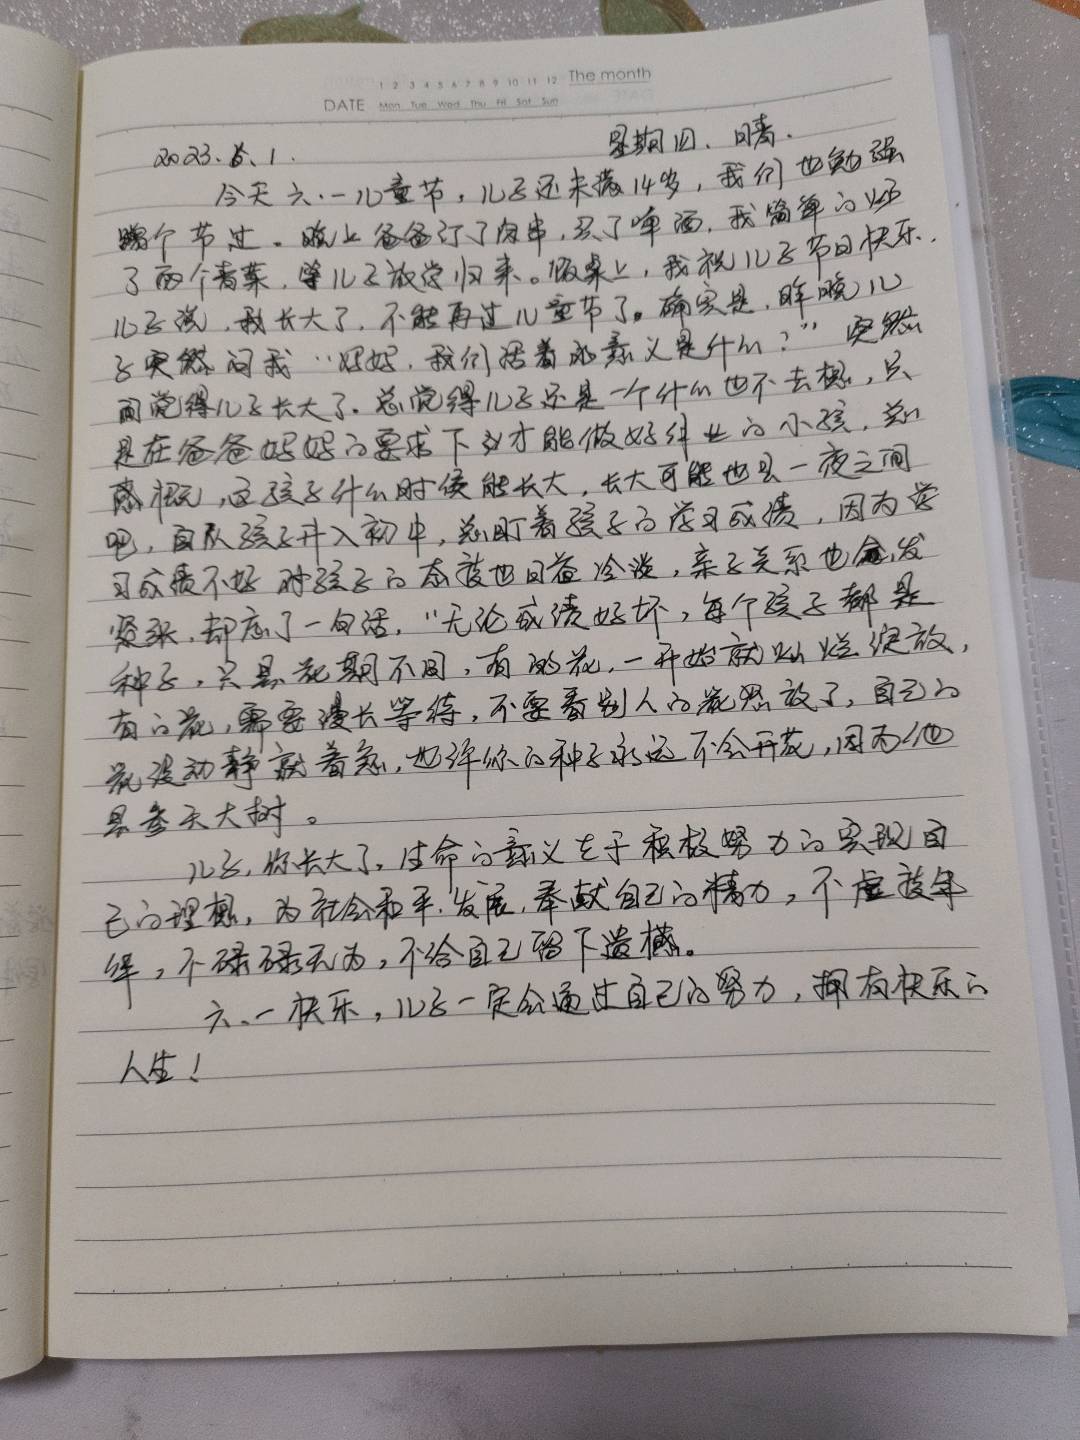 1 2 3 4 5 6 7 8 9 10 11 12 The month
DATE Mon Tue Wed Thu Fri Sat Sun
2023.6.1. 星期四、晴.
今天六.一儿童节,儿子还未满14岁,我们也勉强
蹭个节过。晚上爸爸订了肉串,买了啤酒,我简单的炒
了两个青菜,等儿子放学归来。饭桌上,我祝儿子节日快乐.
儿子说,我长大了,不能再过儿童节了。确实是,昨晚儿
子突然问我"妈妈,我们活着的意义是什么?"突然
间觉得儿子长大了。总觉得儿子还是一个什么也不去想,只
是在爸爸妈妈的要求下才能做好作业的小孩,总
感慨,这孩子什么时候能长大,长大可能也是一夜之间
吧,自从孩子升入初中,总盯着孩子的学习成绩,因为学
习成绩不好对孩子的态度也日益冷淡,亲子关系也愈发
紧张,却忘了一句话,"无论成绩好坏,每个孩子都是
种子,只是花期不同,有的花,一开始就灿烂绽放,
有的花,需要漫长等待,不要看别人的花怒放了,自己的
花没动静就着急,也许你的种子永远不会开花,因为他
是参天大树。
儿子,你长大了,生命的意义在于积极努力的实现自
己的理想,为社会和平.发展.奉献自己的精力,不虚度年
华,不碌碌无为,不给自己留下遗憾。
六.一快乐,儿子一定会通过自己的努力,拥有快乐的
人生!